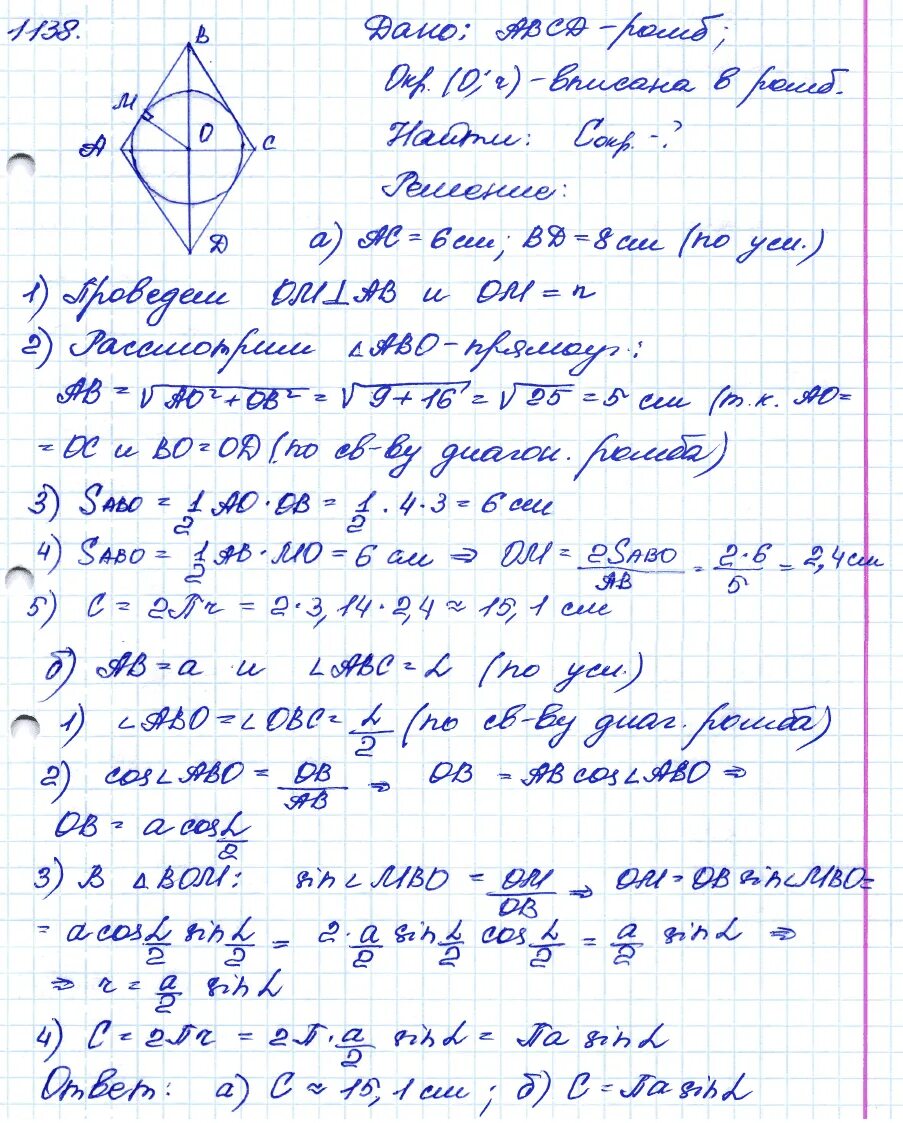 1138.
B
M
A
O
C
D
Дано: ABCD – ромб;
Окр. (O; r) – вписана в ромб.
Найти: Cокр. – ?
Решение:
а) AC = 6 см; BD = 8 см (по усл.)
1) Проведем OM⊥AB и OM = r
2) Рассмотрим ∠ABO – прямоуг.:
AB = √AO² + OB² = √9 + 16 = √25 = 5 см (т.к. AO =
= OC и BO = OD (по св-ву диагон. ромба)
3) SABO = 1/2 AO · OB = 1/2 · 4 · 3 = 6 см
4) SABO = 1/2 AB · MO = 6 см ⇒ OM = 2SABO/AB = 2·6/5 = 2,4 см
5) C = 2πr = 2 · 3,14 · 2,4 ≈ 15,1 см
б) AB = a и ∠ABC = α (по усл.)
1) ∠ABO = ∠OBC = α/2 (по св-ву диаг. ромба)
2) cos∠ABO = OB/AB ⇒ OB = AB cos∠ABO ⇒
OB = a cos α/2
3) В △BOM: sin∠MBO = OM/OB ⇒ OM = OB sin∠MBO =
= a cos α/2 sin α/2 = 2 · a/2 sin α/2 cos α/2 = a/2 sin α ⇒
⇒ r = a/2 sin α
4) C = 2πr = 2π · a/2 sin α = πa sin α
Ответ: а) C ≈ 15,1 см; б) C = πa sin α